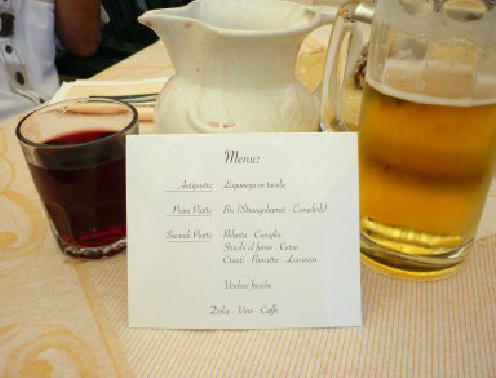 Menu:
Antipasto: Luganega in tavola
Primi Piatti: Bis (Strangolapreti - Canederli)
Secondi Piatti: Polenta - Coniglio
Stinchi al forno - Carne
Crauti - Pancetta - Lucanica
Verdure fresche
Dolce - Vino - Caffè